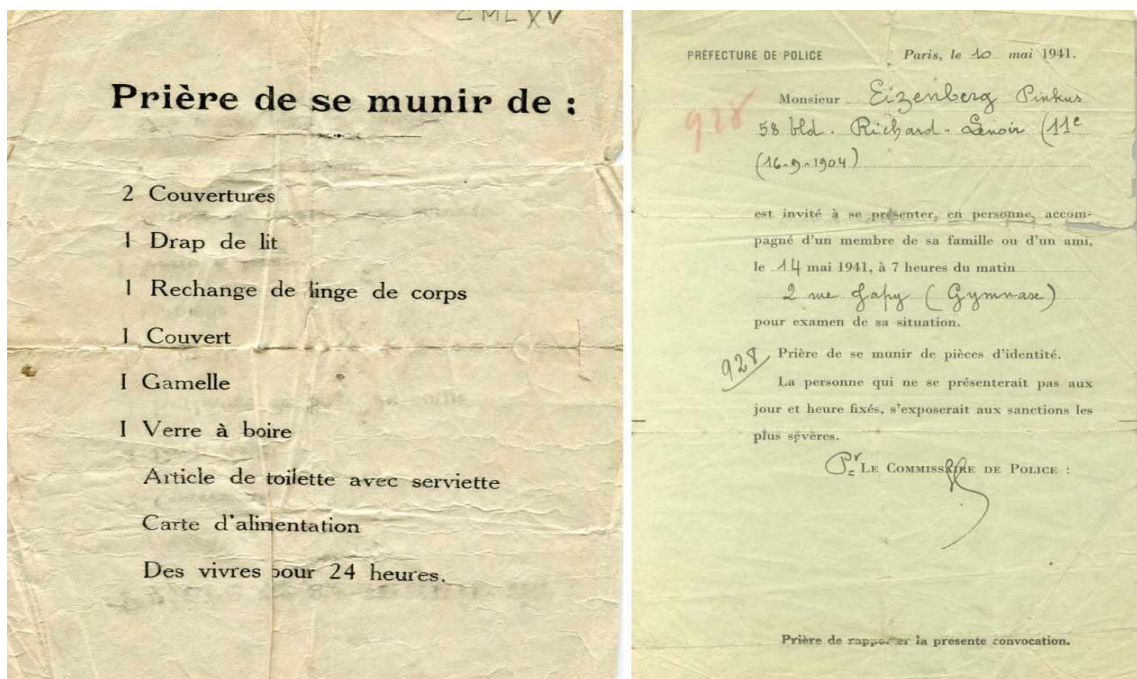 CMLXV
Prière de se munir de :
2 Couvertures
1 Drap de lit
1 Rechange de linge de corps
1 Couvert
1 Gamelle
1 Verre à boire
Article de toilette avec serviette
Carte d'alimentation
Des vivres pour 24 heures.
PRÉFECTURE DE POLICE Paris, le 10 mai 1941.
Monsieur Eizenberg Pinkus
928 58 bld. Richard-Lenoir (11e
(16-9-1904)
est invité à se présenter, en personne, accom-
pagné d'un membre de sa famille ou d'un ami,
le 14 mai 1941, à 7 heures du matin
2 rue Japy (Gymnase)
pour examen de sa situation.
928 Prière de se munir de pièces d'identité.
La personne qui ne se présenterait pas aux
jour et heure fixés, s'exposerait aux sanctions les
plus sévères.
Pr LE COMMISSAIRE DE POLICE :
Prière de rapporter la presente convocation.